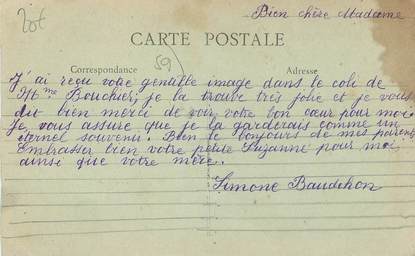 Bien chère Madame
CARTE POSTALE
59
Correspondance
Adresse
J'ai reçu votre gentille image dans le coli de
Mme Bouchier; je la trouve très jolie et je vous
dit bien merci de voir votre bon cœur pour moi
Je vous assure que je la garderais comme un
éternel souvenir. Bien le bonjours de mes parents
Embrasser bien votre petite Suzanne pour moi,
ainsi que votre mère.
Simone Baudichon